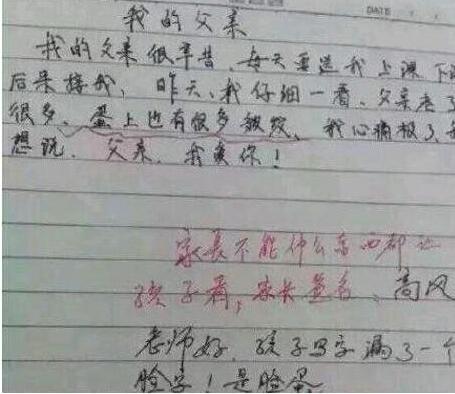 DATE
我的父亲
我的父亲很辛苦，每天要送我上课，下课
后来接我，昨天，我仔细一看，父亲老了
很多，蛋上也有很多皱纹，我心痛极了，我
想说，父亲，我爱你！
家长不能什么东西都让
孩子看，家长签名、高风
老师好，孩子写字漏了一个
脸字！是脸蛋